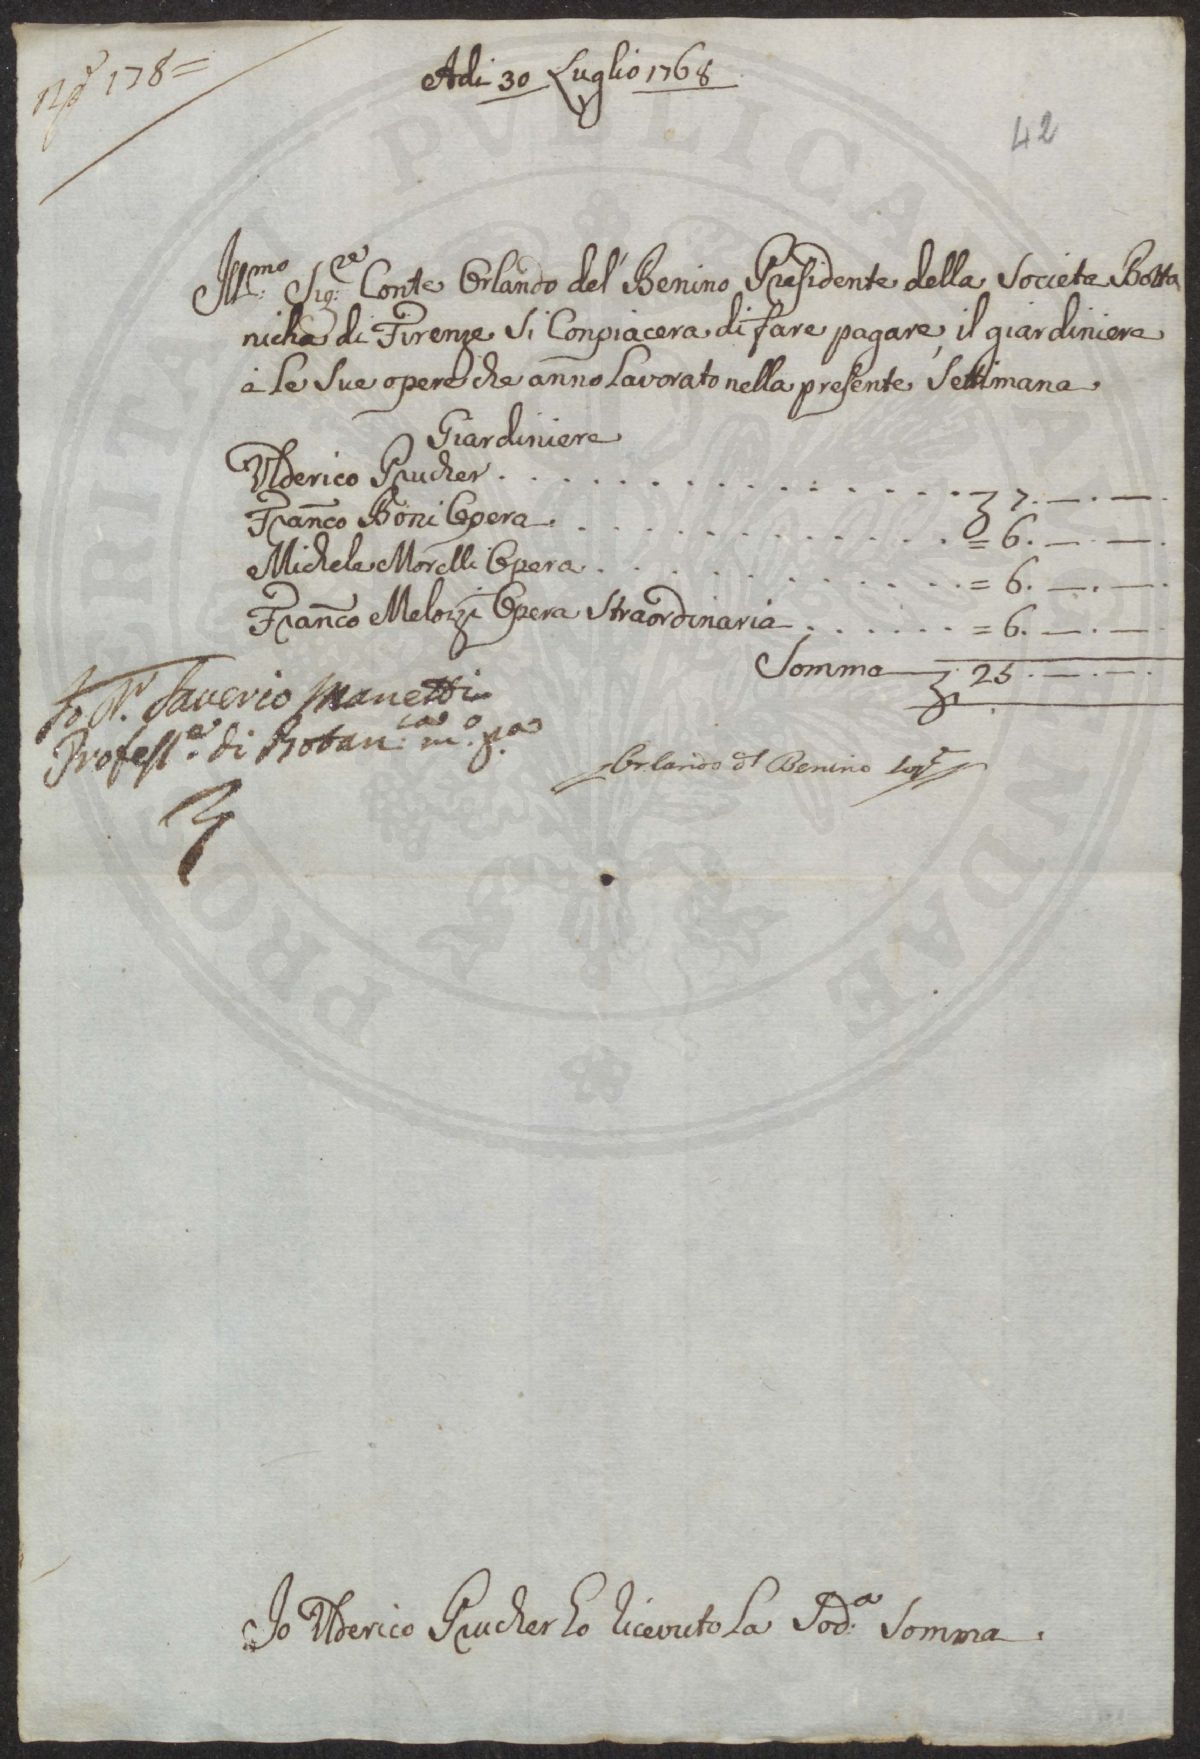 N.º 178=
Adi 30 Luglio 1768
42
Ill:mo Sig:re Conte Orlando del Benino Presidente della Societa Botta
nicha di Firenze Si Conpiacera di fare pagare il giardiniere
a le Sue opere che anno Lavorato nella presente Settimana
Giardiniere
Ulderico Prucher . . . . . . . . . . . . . . . 7. — . — .
Franco Boni Opera . . . . . . . . . . . . = 6. — . — .
Michele Morelli Opera . . . . . . . . . . . = 6. — . — .
Franco Meloizi Opera Straordinaria . . . . . . = 6. — . — .
Somma 25 . — . — .
Io D.r Saverio Manetti
Profess.e di Botan:ca m.o p.a
Orlando dl Benino
Io Ulderico Prucher ho ricevuto la Sod:a Somma .
PROSPERITATI PUBLICAE AUGENDAE